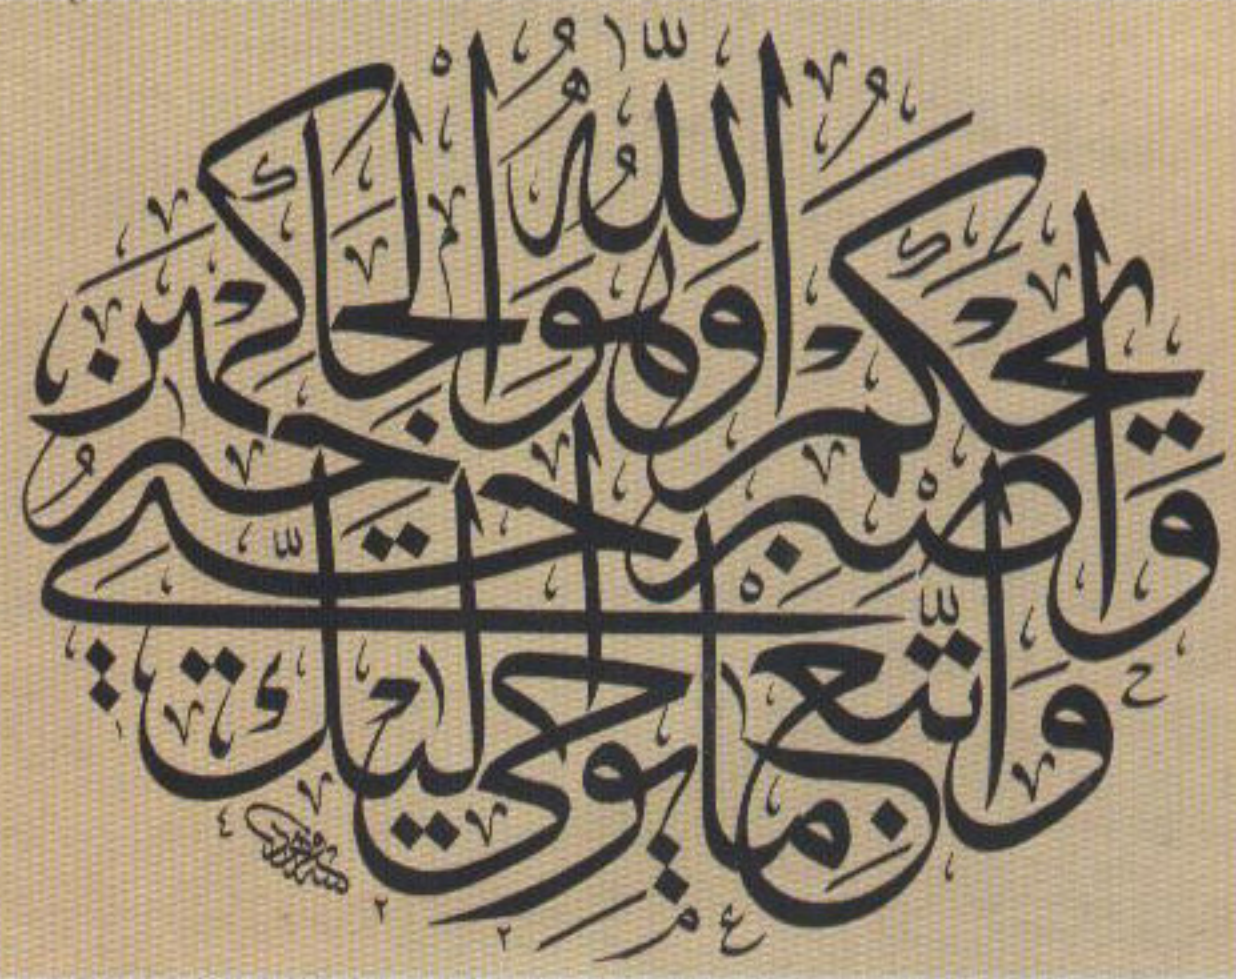 وَاتَّبِعْ مَا يُوحَىٰ إِلَيْكَ
وَاصْبِرْ حَتَّىٰ
يَحْكُمَ اللَّهُ وَهُوَ خَيْرُ الْحَاكِمِينَ